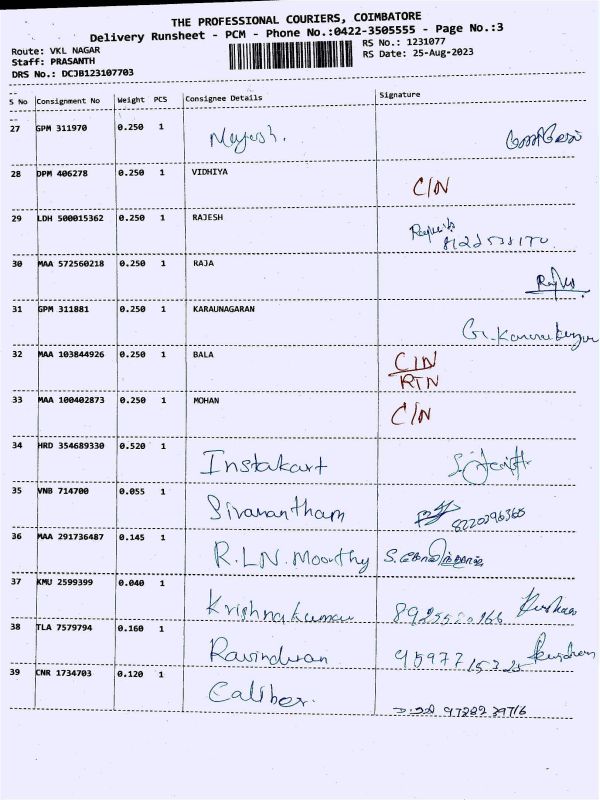 THE PROFESSIONAL COURIERS, COIMBATORE
Delivery Runsheet - PCM - Phone No.:0422-3505555 - Page No.:3
Route: VKL NAGAR RS No.: 1231077
Staff: PRASANTH RS Date: 25-Aug-2023
DRS No.: DCJB123107703
S No Consignment No Weight PCS Consignee Details Signature
27 GPM 311970 0.250 1
28 DPM 406278 0.250 1 VIDHIYA C/N
29 LDH 500015362 0.250 1 RAJESH
30 MAA 572560218 0.250 1 RAJA
31 GPM 311881 0.250 1 KARAUNAGARAN
32 MAA 103844926 0.250 1 BALA C/N
RTN
33 MAA 100402873 0.250 1 MOHAN C/N
34 HRD 354689330 0.520 1 Instakart
35 VNB 714700 0.055 1 Sivanantham 8220296366
36 MAA 291736487 0.145 1 R.L.N. Moorthy
37 KMU 2599399 0.040 1 Krishnakumar
38 TLA 7579794 0.160 1 Ravindran
39 CNR 1734703 0.120 1 Caliber.